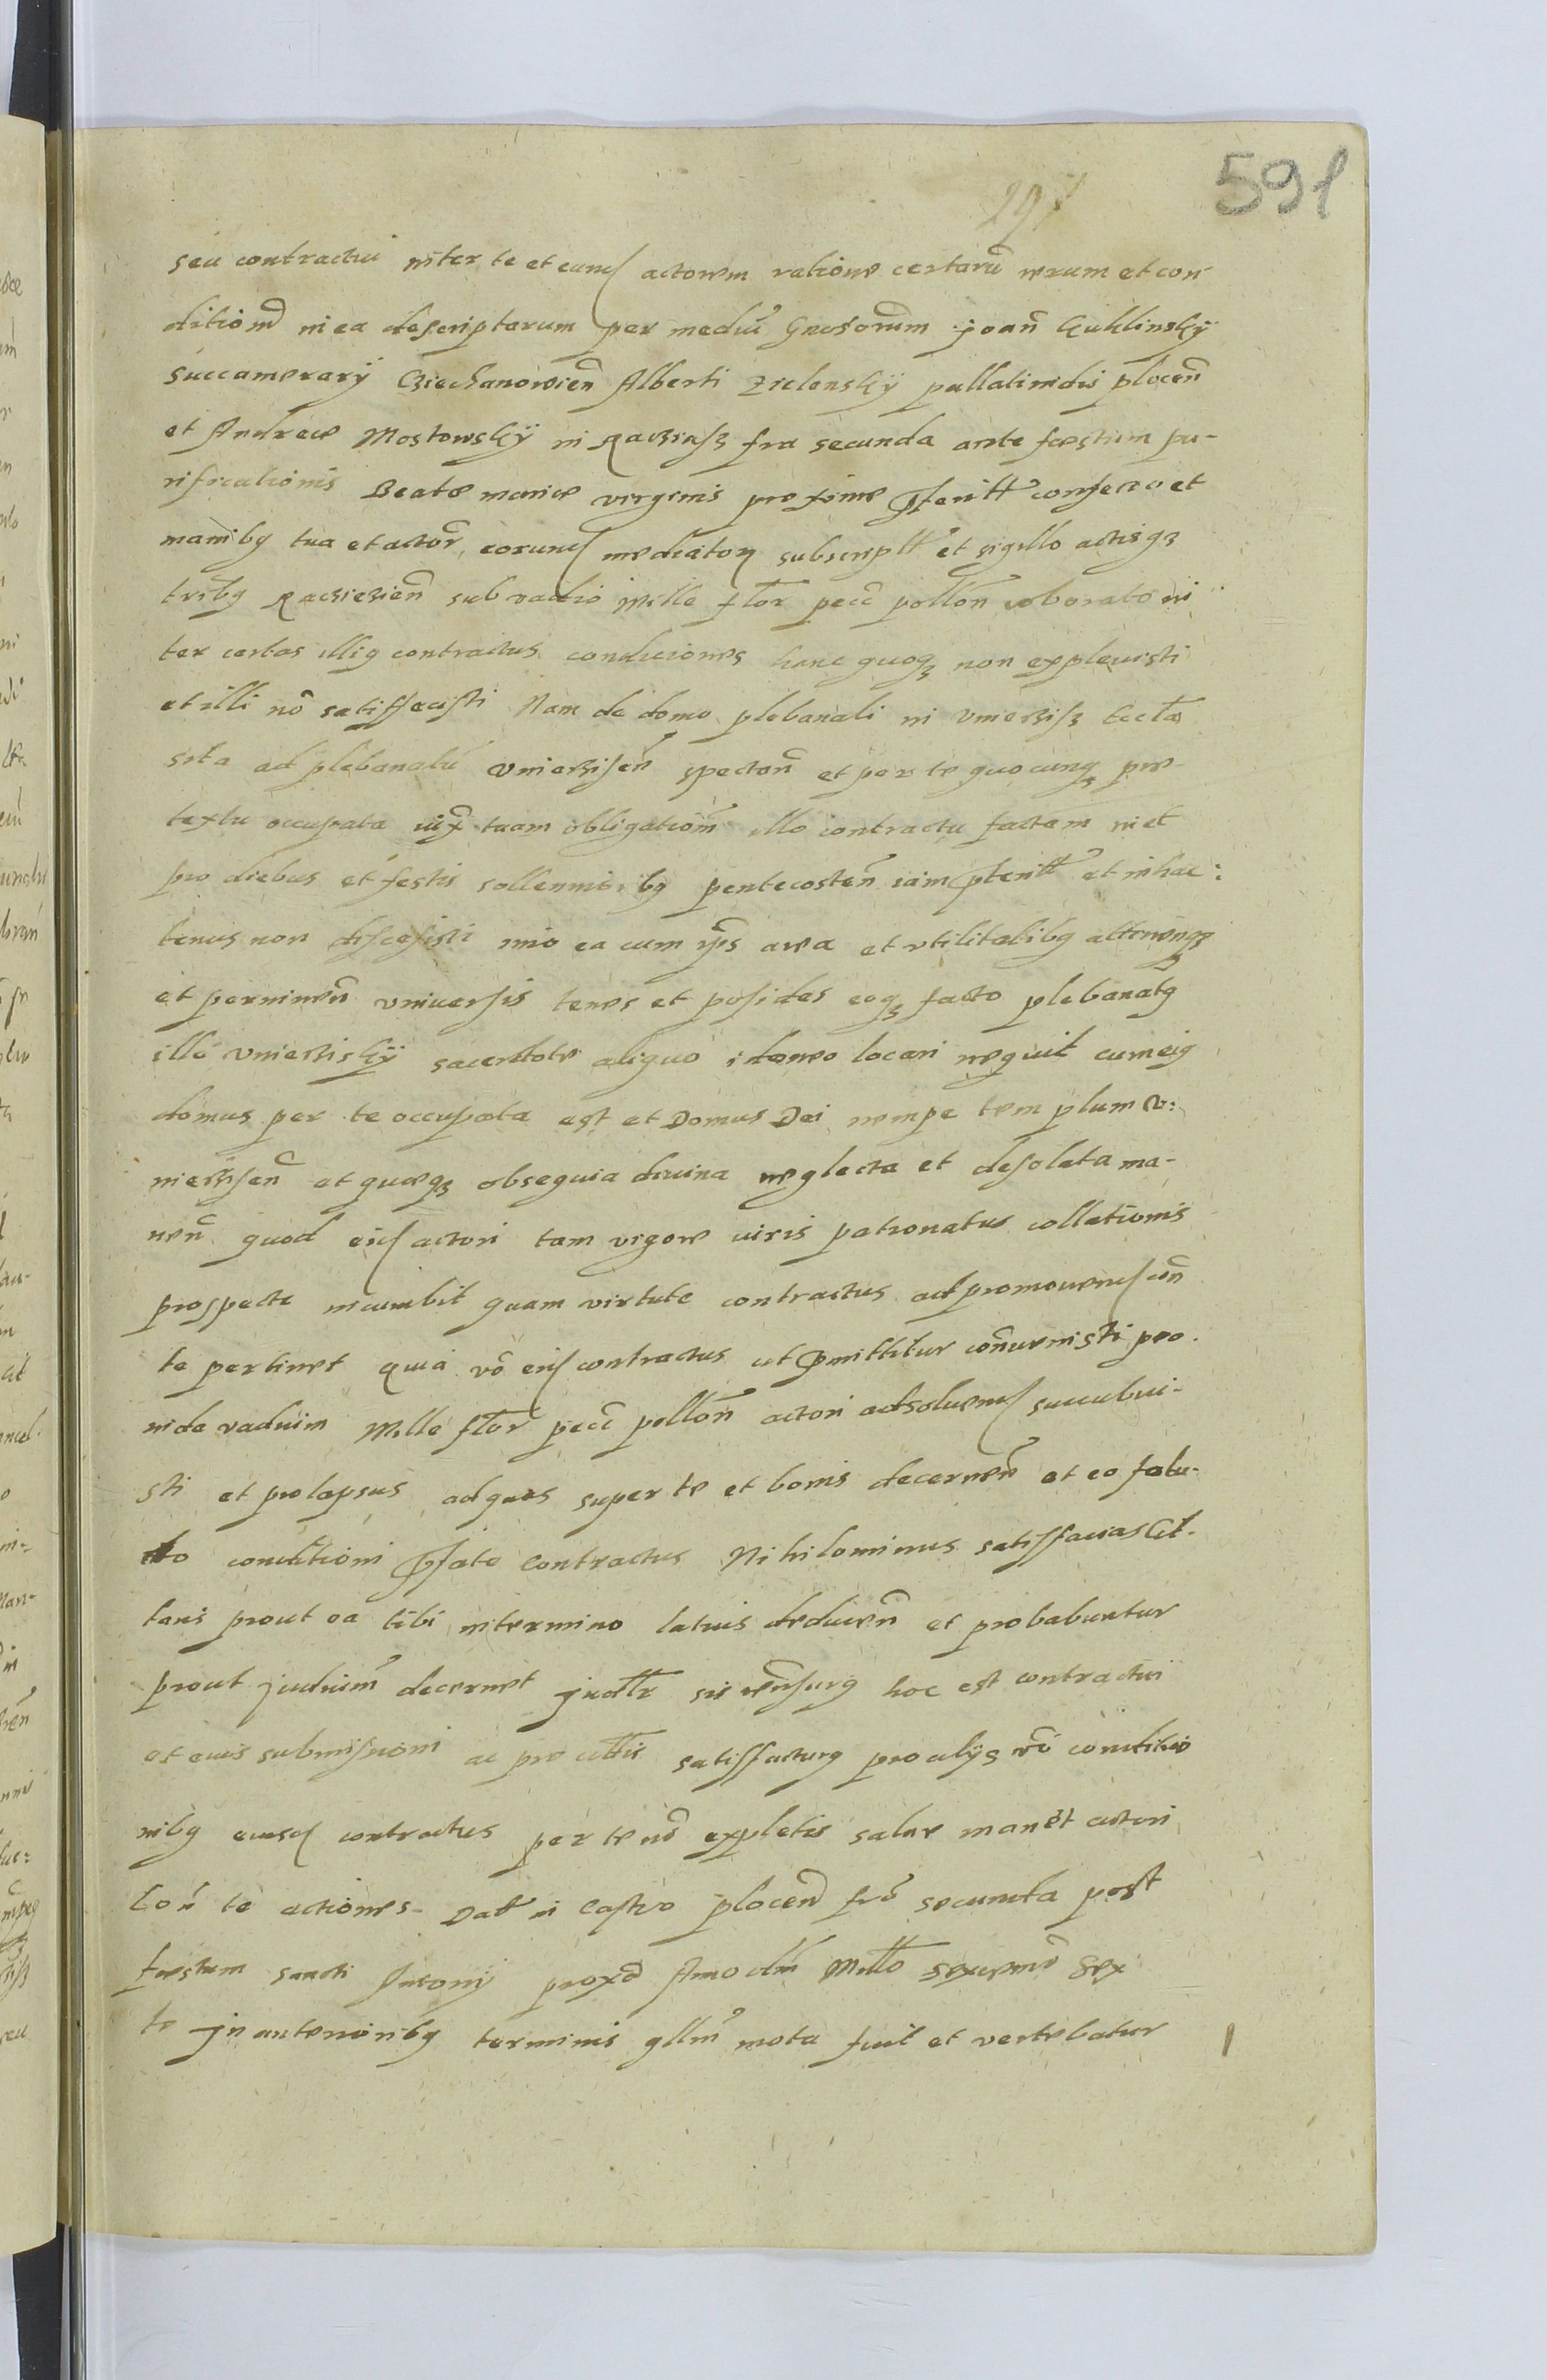 591
297
seu contractui inter te et eund actorem ratione certarū rerum et con-
ditionū in ea descriptarum per mediū Gnosorūm Joañ Cuklinskÿ
succamerarÿ Cziechanowień Alberti Zielenskÿ pallatinidis płoceñ
et Andreæ Mostowskÿ in Racziąsz fra secunda ante fæstum pu-
rificationis Beatæ mariæ virginis proxime pteritt confecto et
manibq tua et actor, eorund mediator subscriptt et sigillo actisqz
tribq Raczieień sub vadio Mille flor pecc pollon roborato in
ter certas illiq contractus condiciones hanc quoqz non explevisti
et illi nō satisfecisti Nam de domo plebanali in Vnierzisz Eccła
sita ad plebanatū Vnierzisēn spectañ et per te quocunqz præ-
textu occupata iux tuam obligationē illo contractu factam niet
pro diebus et festis sollenniribq pentecosteñ iam pteritt et inhac:
tenus non discesisti imo ea cum ijs area et vtilitatibq attinenqz
et perninen vniuersis tenes et posides eoqz facto plebanatq
ille Vnierziskÿ sacerdote aliquo idoneo locari nequit cum eiq
domus per te occupata est et Domus Dei nempe templum V:
nierzisēn et quæqz obsequia diuina neglecta et desolata ma-
neñ quod eid actori tam vigore iuris patronatus collationis
prospecte incumbit quam virtute contractus ad promouend coñ
te pertinet quia vō eid contractus ut pmittitur coñuenisti pro-
inde vadium Mille flor pecc pollon actori adsoluend succubui-
sti et prolapsus ad quas super te et bonis decerneñ et eo solu-
to conditioni pfate contractus Nihilominus satisfacias Cit-
taris prout ea tibi in termino latius deduceñ et probabuntur
prout judicium decernet judtr sis reñsurq hoc est contractui
et eius submissioni ac præcittis satisfacturq pro alijs vō conditio
nibq eiusd contractus per te nō expletis saluæ manet actori
Coñ te actiones- Datt in Castro płoceñ frā secunda post
fæstum sancti Antonij proxō Anno dñi Millō sexcentō sex
to Jn anterioribq terminis gllm mota fuit et vertebatur